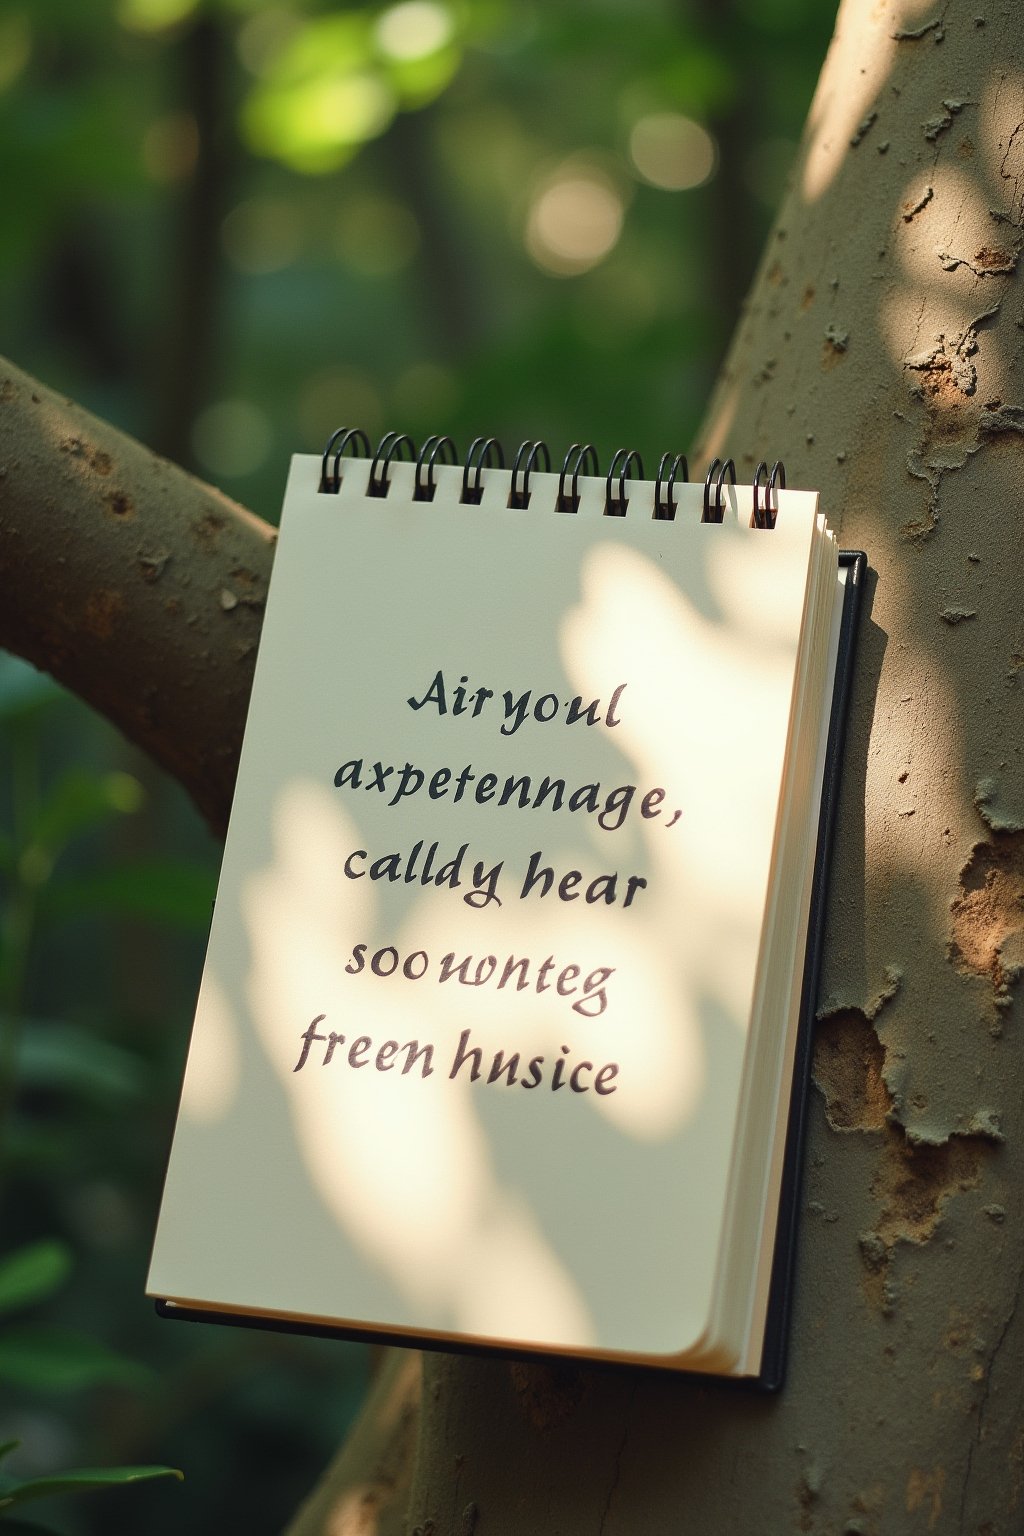 Air youl
axpetennage,
calldy hear
soo wonteg
freen husice